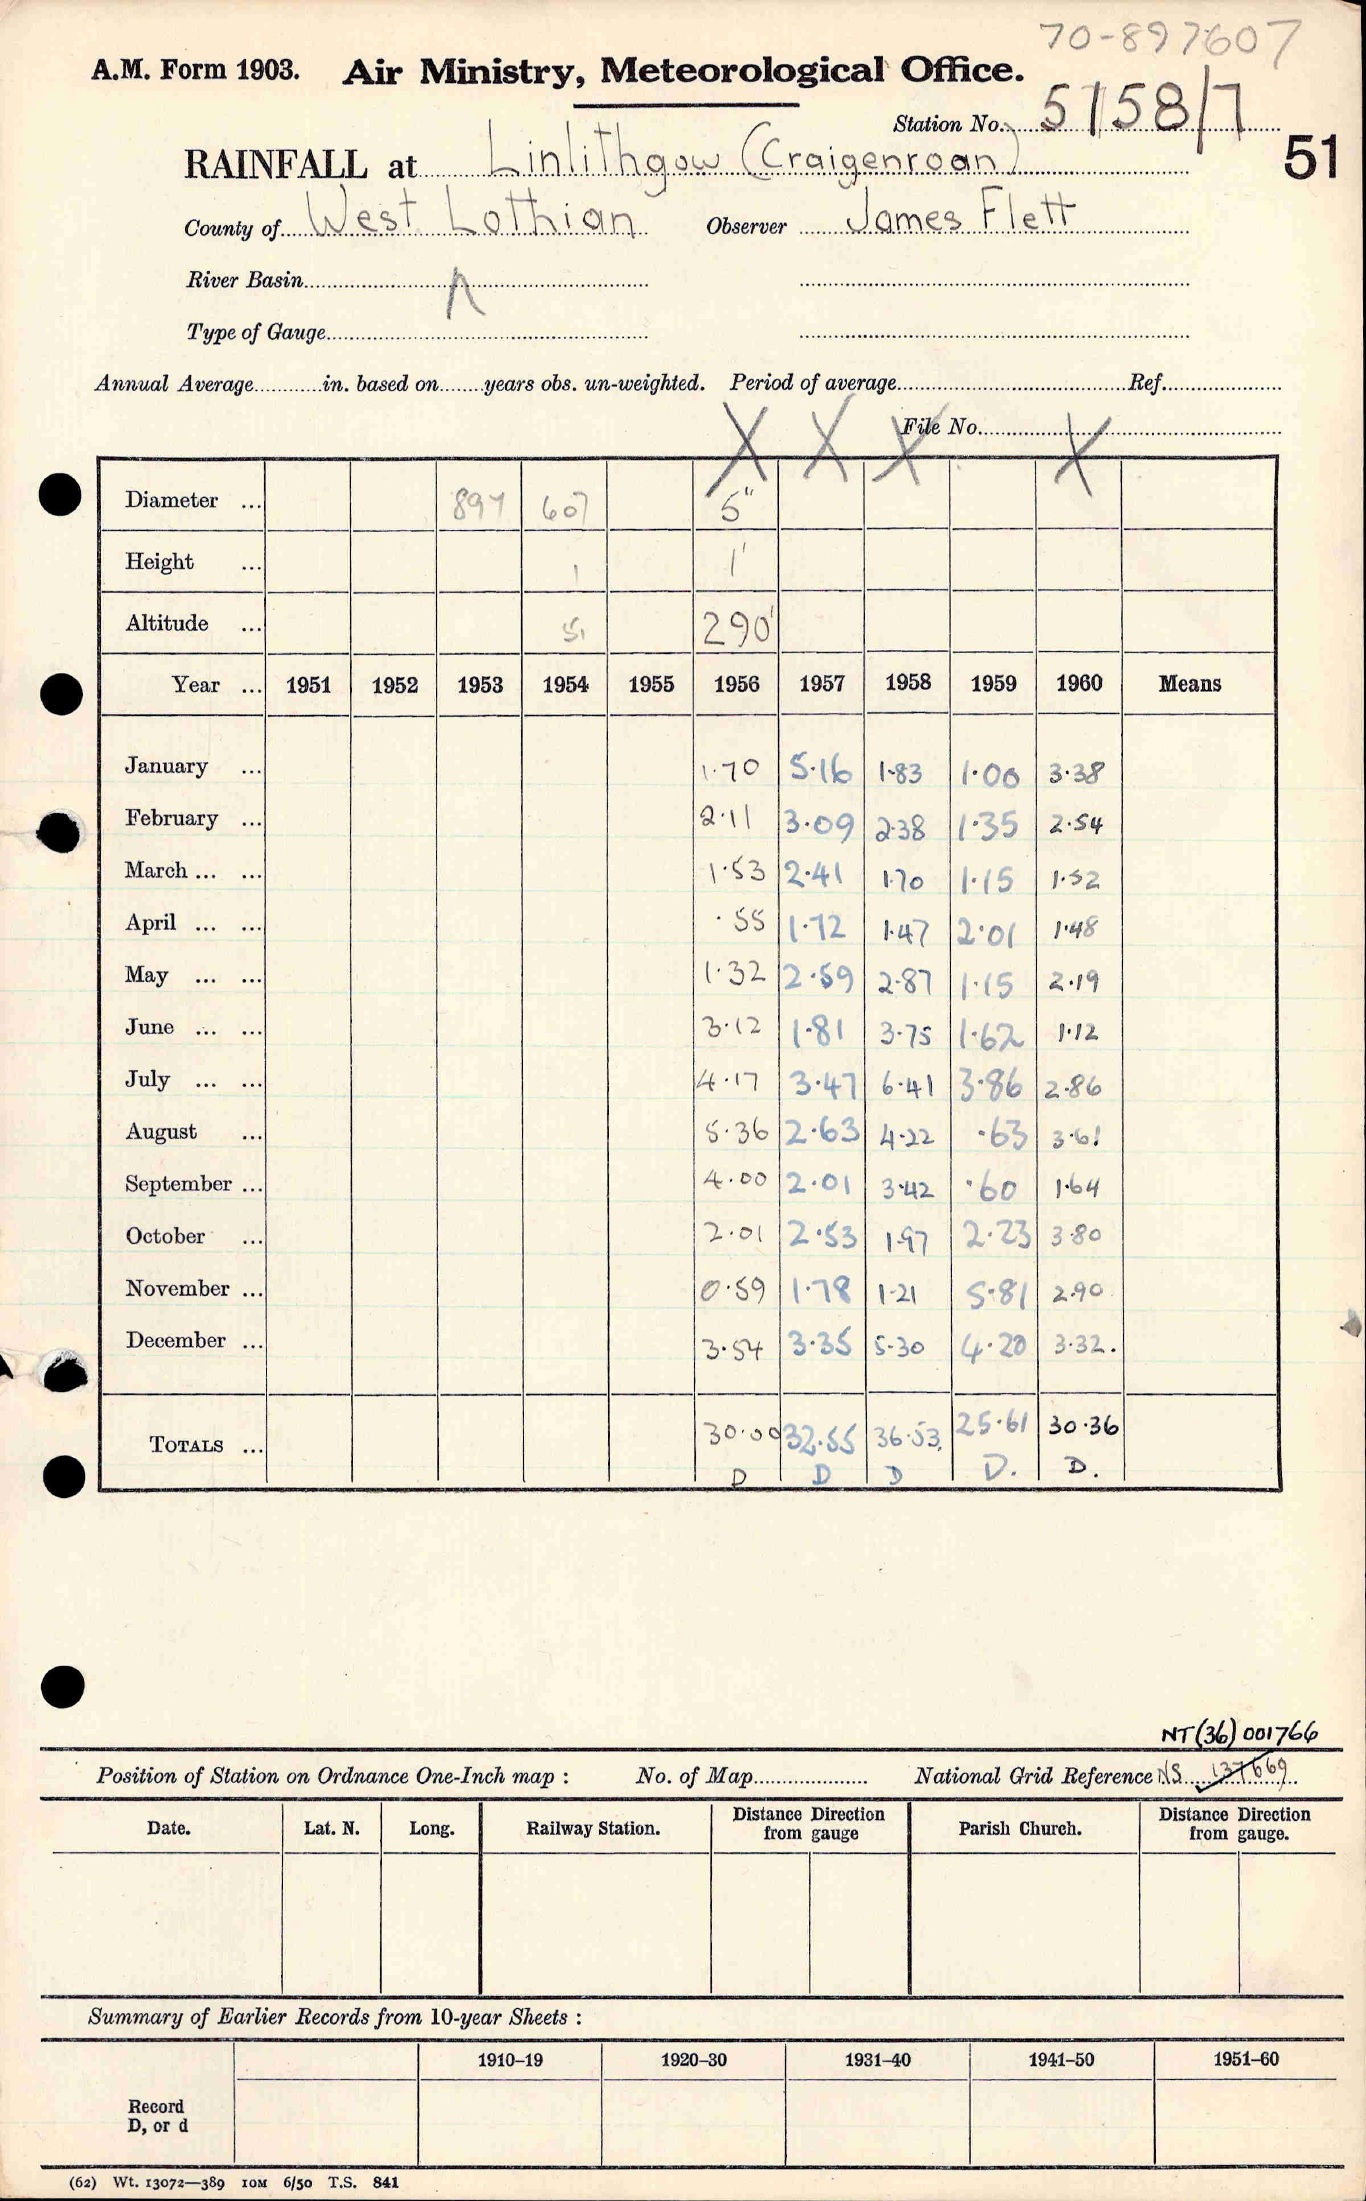 70-897607
A.M. Form 1903. Air Ministry, Meteorological Office.
Station No. 5158/7
51
RAINFALL at Linlithgow (Craigenroan)
County of West Lothian Observer James Flett
River Basin
Type of Gauge
Annual Average in. based on years obs. un-weighted. Period of average Ref.
File No.
X X X X
Diameter ... 897 607 5"
Height ... 1 1'
Altitude ... 51 290'
Year ... 1951 1952 1953 1954 1955 1956 1957 1958 1959 1960 Means
January ... 1.70 5.16 1.83 1.00 3.38
February ... 2.11 3.09 2.38 1.35 2.54
March ... ... 1.53 2.41 1.70 1.15 1.52
April ... ... .55 1.72 1.47 2.01 1.48
May ... ... 1.32 2.59 2.87 1.15 2.19
June ... ... 3.12 1.81 3.75 1.62 1.12
July ... ... 4.17 3.47 6.41 3.86 2.86
August ... 5.36 2.63 4.22 .63 3.61
September ... 4.00 2.01 3.42 .60 1.64
October ... 2.01 2.53 1.97 2.23 3.80
November ... 0.59 1.78 1.21 5.81 2.90
December ... 3.54 3.35 5.30 4.20 3.32.
TOTALS ... 30.00 32.55 36.53. 25.61 30.36
D D D D. D.
NT (36) 001766
Position of Station on Ordnance One-Inch map : No. of Map National Grid Reference NS 137669
Date. Lat. N. Long. Railway Station. Distance Direction from gauge Parish Church. Distance Direction from gauge.
Summary of Earlier Records from 10-year Sheets :
1910–19 1920–30 1931–40 1941–50 1951–60
Record
D, or d
(62) Wt. 13072—389 10M 6/50 T.S. 841